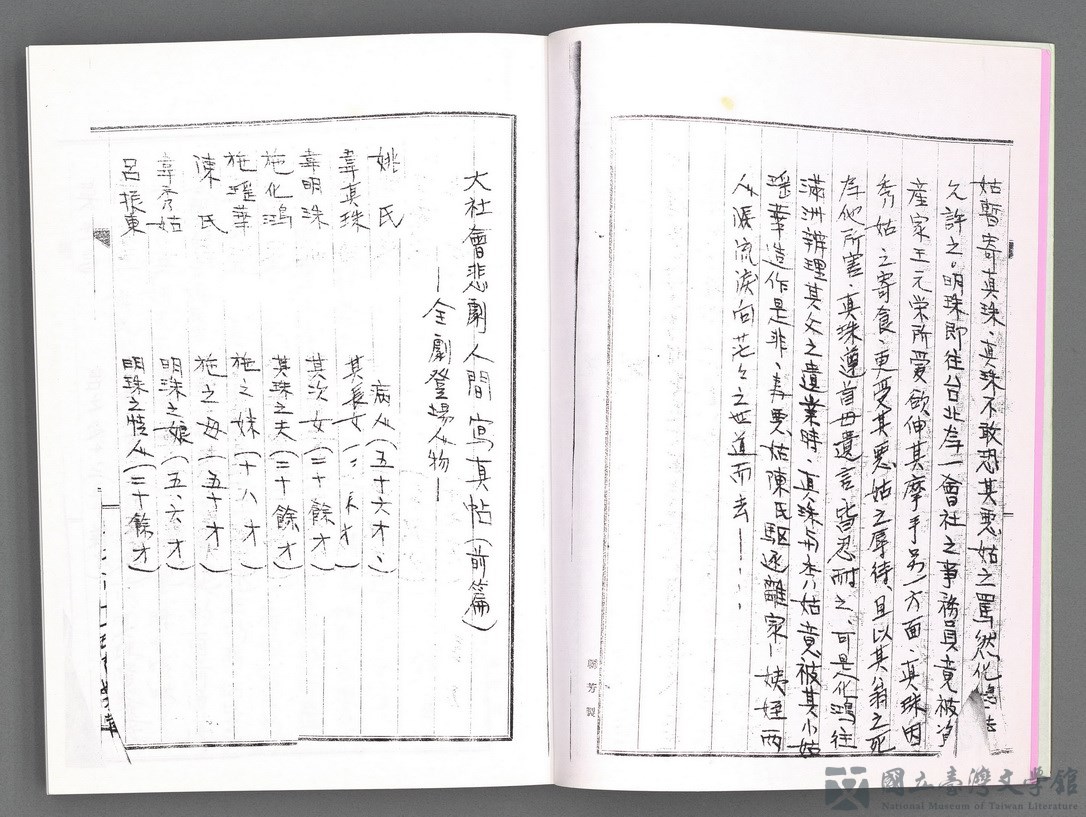 姑暫寄真珠、真珠不敢恐其惡姑之罵然化鴻
允許之。明珠即往台北存一會社之事務員竟被資
產家王元榮所愛欲伸其摩手另一方面、真珠因
秀姑之寄食、更受其惡姑之辱待、且以其翁之死
存他所害、真珠遵首母遺言、皆忍耐之、可是化鴻往
滿洲辦理其父之遺業時、真珠與秀姑竟被其小姑
瑤華造作是非、毒惡姑陳氏驅逐離家—姨姪兩
人淚流淚向茫々之世道而去————
關芳製
大社會悲劇人間寫真帖(前篇)
—全劇登場人物—
姚氏 病人(五十六才、)
韋真珠 其長女(才)
韋明珠 其次女(二十餘才)
施化鴻 真珠之夫(三十餘才)
施瑤華 施之妹(十八才)
陳氏 施之母(五十才)
韋秀姑 明珠之娘(五、六才)
呂振東 明珠之情人(二十餘才)
國立臺灣文學館
National Museum of Taiwan Literature